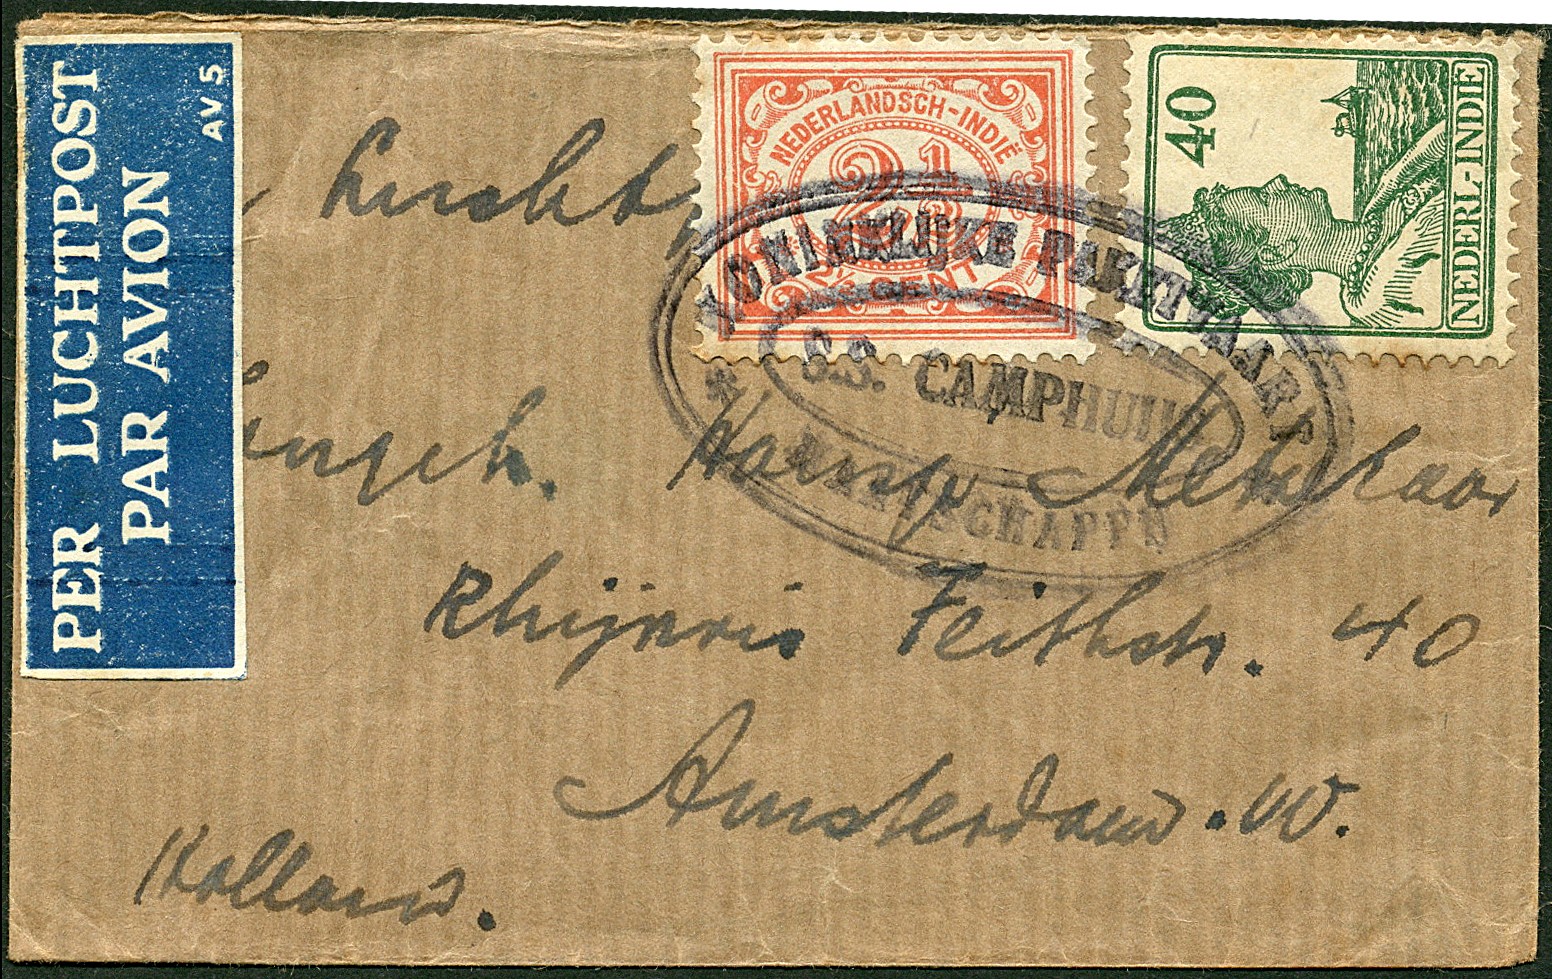 PER LUCHTPOST
PAR AVION
AV 5
NEDERLANDSCH-INDIË
2½
CENT
40
NEDERL-INDIE
KONINKLIJKE PAKETVAART
S.S. CAMPHUIJS
MAATSCHAPPIJ
Lucht
Rhijnvis Feithstr. 40
Amsterdam. W.
Holland.